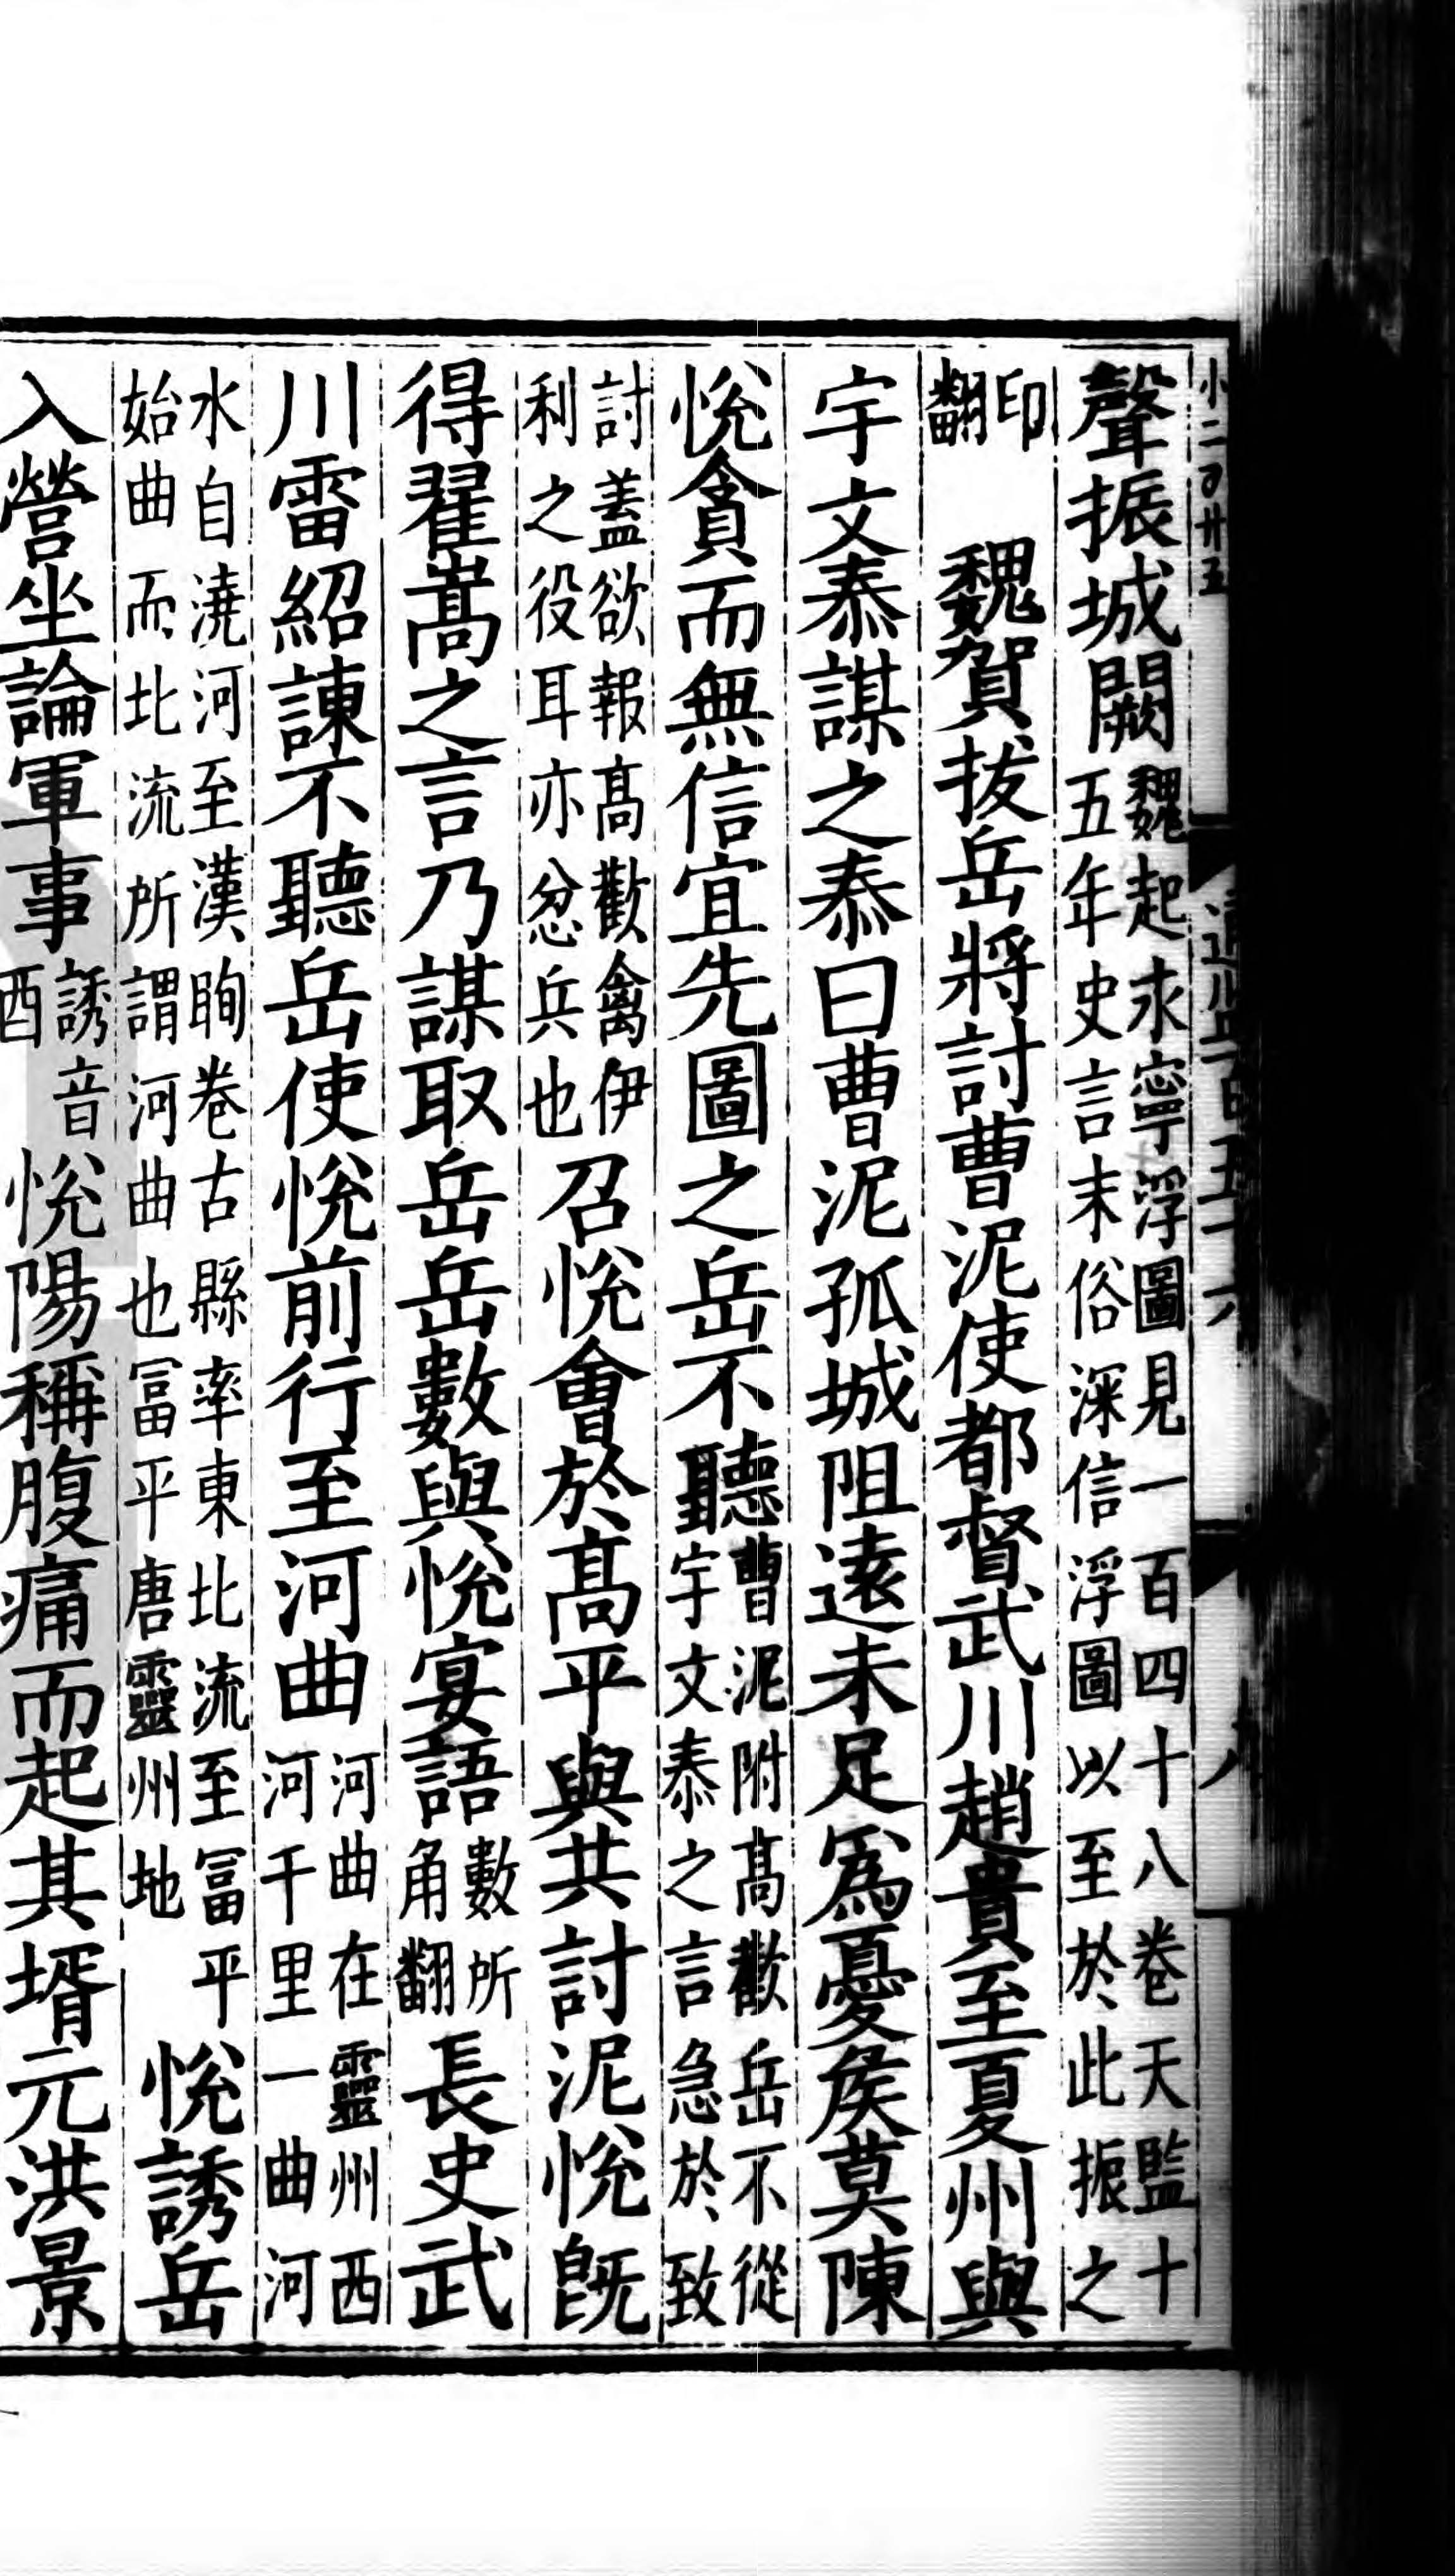 聲振城闕魏起永寧浮圖見一百四十八卷天監十五年史言末俗深信浮圖以至於此振之
印翻魏賀拔岳將討曹泥使都督武川趙貴至夏州與
宇文泰謀之泰曰曹泥孤城阻遠未足爲憂侯莫陳
悅貪而無信宜先圖之岳不聽曹泥附髙歡岳不從宇文泰之言急於致
討蓋欲報髙歡禽伊利之役耳亦忿兵也召悅會於髙平與共討泥悅旣
得翟嵩之言乃謀取岳岳數與悅宴語數所角翻長史武
川雷紹諫不聽岳使悅前行至河曲河曲在靈州西河千里一曲河
水自澆河至漢眴卷古縣率東北流至冨平始曲而北流所謂河曲也冨平唐靈州地悅誘岳
入營坐論軍事誘音酉悅陽稱腹痛而起其壻元洪景